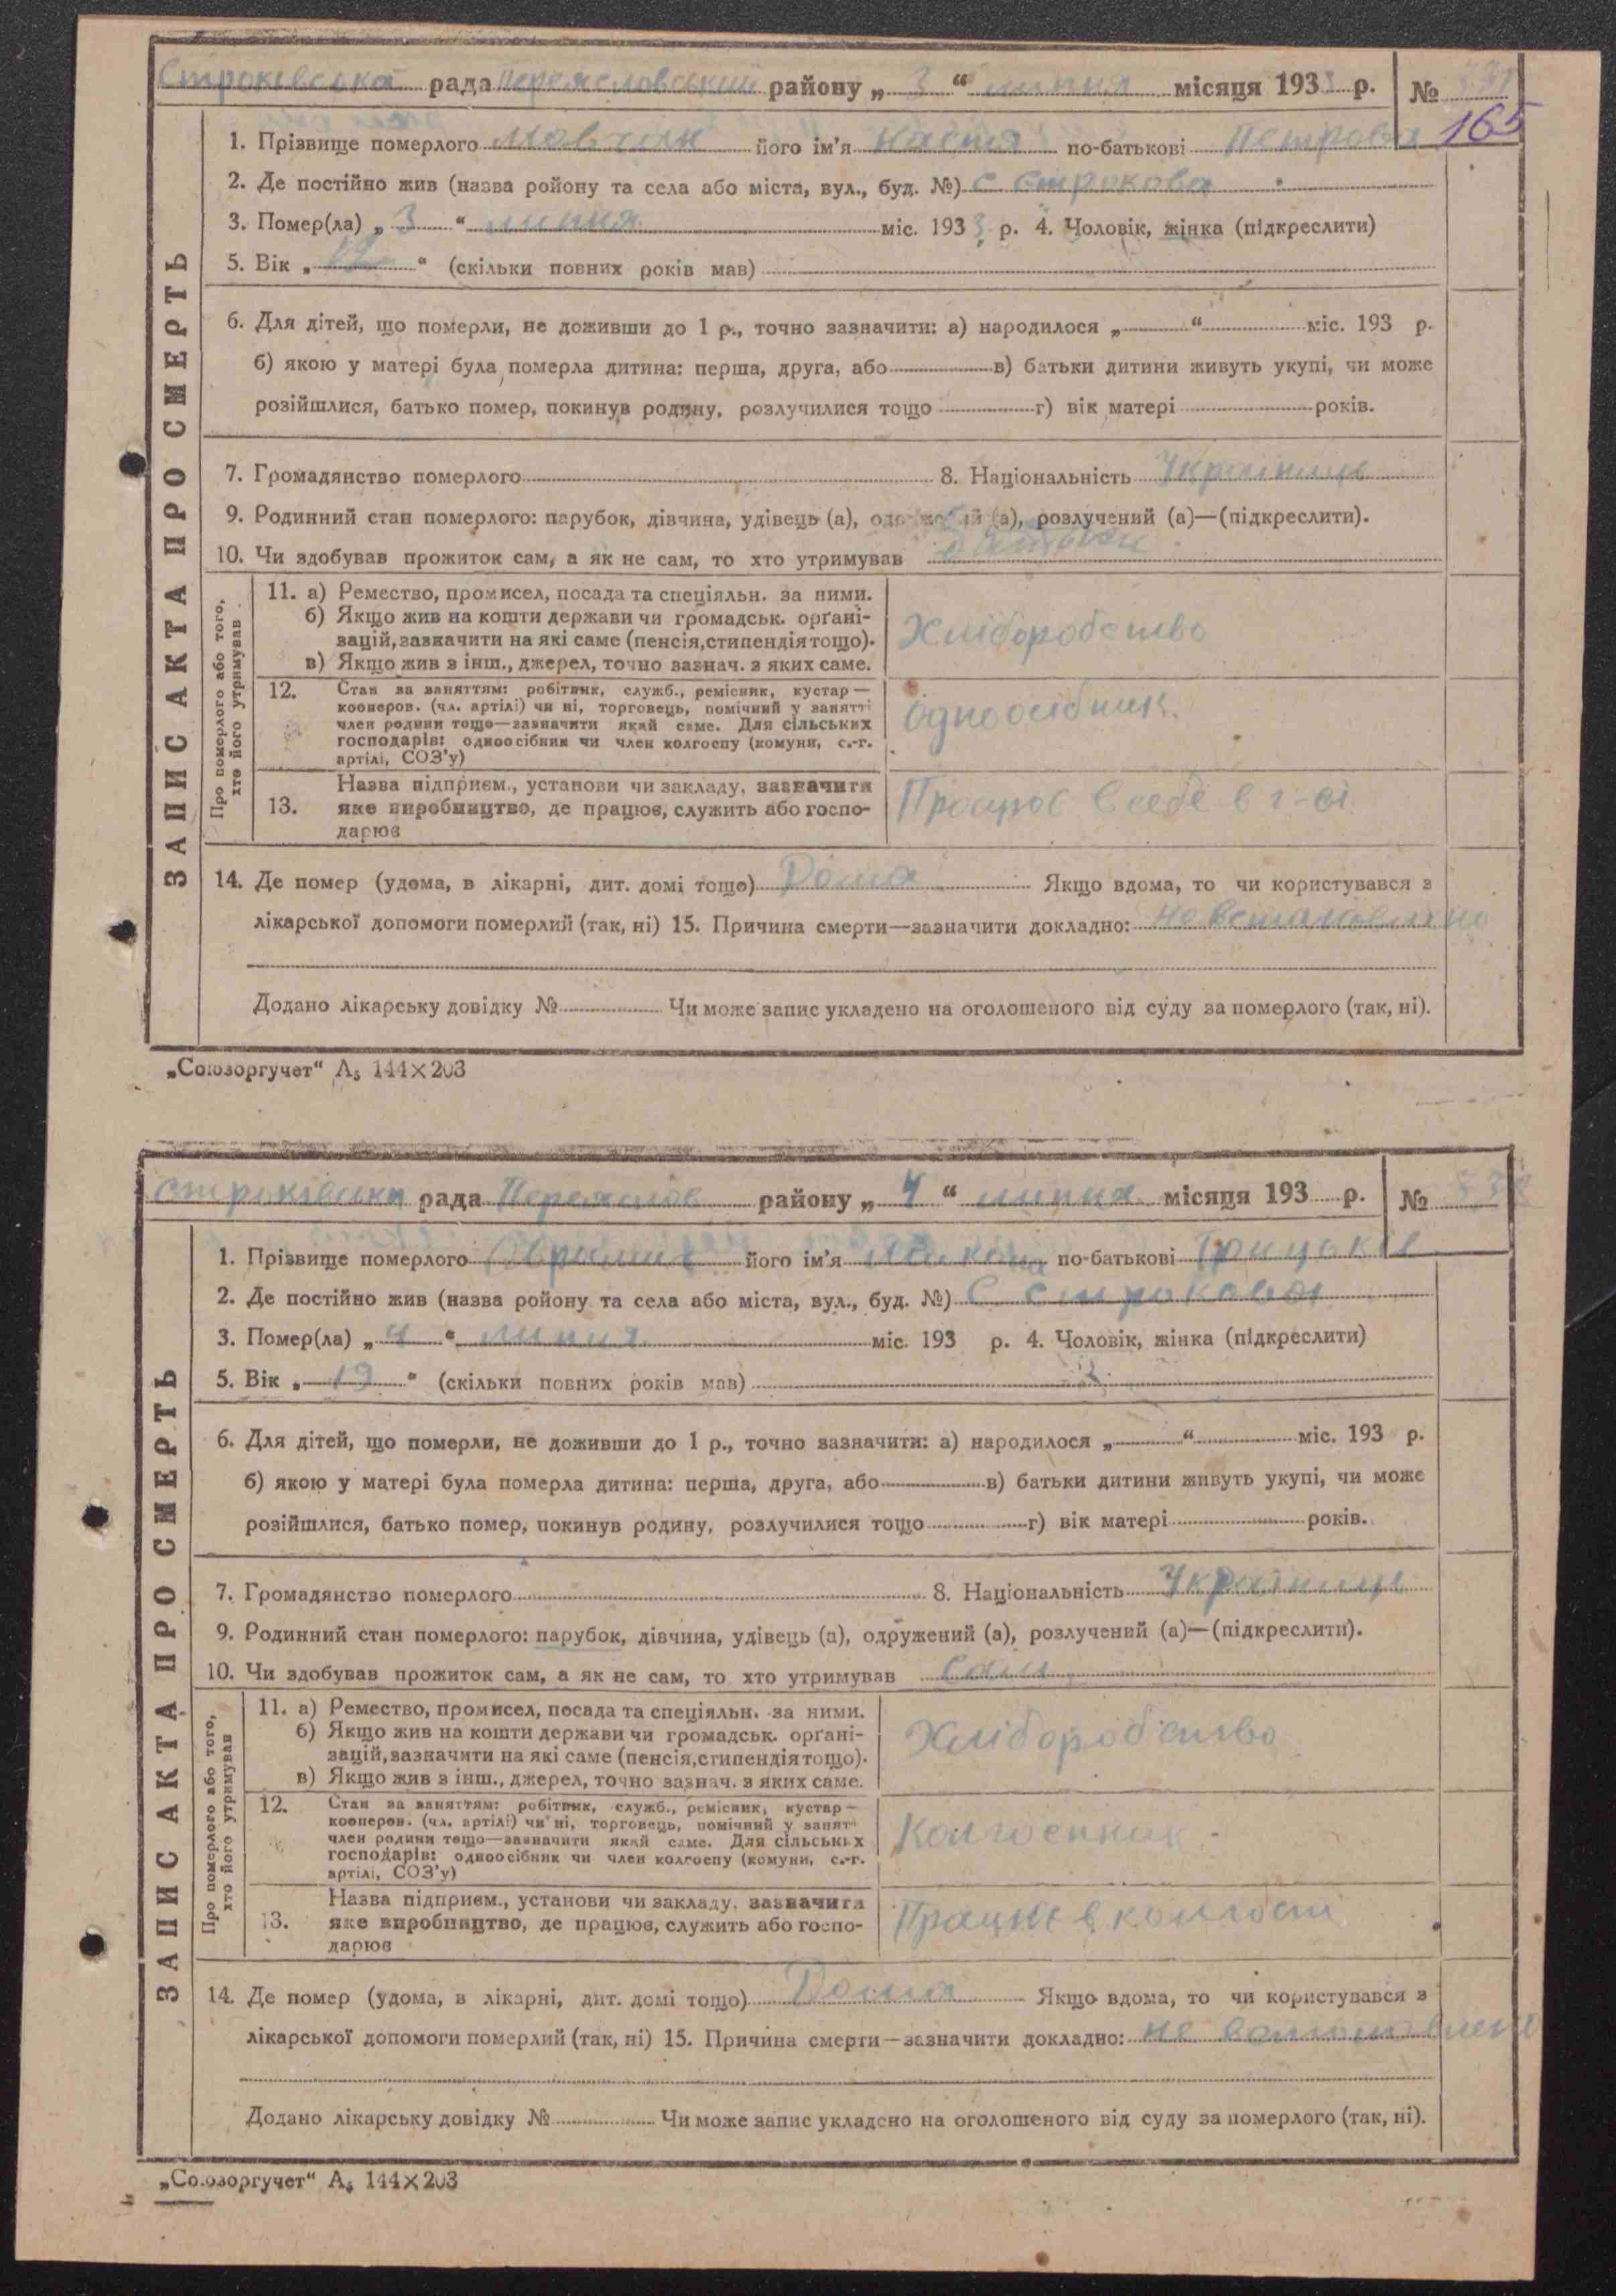 Строківська рада Переяславський району „ 3 “ липня місяця 1933 р. №
165
1. Прізвище померлого Мовчан його ім’я Настя по-батькові Петрова
2. Де постійно жив (назва ройону та села або міста, вул., буд. №) с Строкова
3. Помер(ла) „ 3 “ липня міс. 1933 р. 4. Чоловік, жінка (підкреслити)
5. Вік „ “ (скільки повних років мав)
6. Для дітей, що померли, не доживши до 1 р., точно зазначити: а) народилося „ “ міс. 193 р.
б) якою у матері була померла дитина: перша, друга, або в) батьки дитини живуть укупі, чи може
розійшлися, батько помер, покинув родину, розлучилися тощо г) вік матері років.
7. Громадянство померлого 8. Національність Українець
9. Родинний стан померлого: парубок, дівчина, удівець (а), одружений (а), розлучений (а)—(підкреслити).
10. Чи здобував прожиток сам, а як не сам, то хто утримував батьки
ЗАПИС АКТА ПРО СМЕРТЬ
Про померлого або того,
хто його утримував
11. а) Ремество, промисел, посада та спеціяльн. за ними.
б) Якщо жив на кошти держави чи громадськ. орґані-
зацій, зазначити на які саме (пенсія, стипендія тощо).
в) Якщо жив з інш., джерел, точно зазнач. з яких саме.
Хліборобство
12. Стан за заняттям: робітник, служб., ремісник, кустар—
кооперов. (чл. артілі) чи ні, торговець, помічний у занятті
член родини тощо—зазначити який саме. Для сільських
господарів: одноосібник чи член колгоспу (комуни, с.-г.
артілі, СОЗ’у)
Одноосібник.
13. Назва підприєм., установи чи закладу, зазначити
яке виробництво, де працює, служить або госпо-
дарює
Працює в себе в г-ві
14. Де помер (удома, в лікарні, дит. домі тощо) Дома Якщо вдома, то чи користувався з
лікарської допомоги померлий (так, ні) 15. Причина смерти—зазначити докладно: не встановлено
Додано лікарську довідку № Чи може запис укладено на оголошеного від суду за померлого (так, ні).
„Союзоргучет“ А₅ 144×203
Строківська рада Переяслов району „ 4 “ липня місяця 193 р. №
1. Прізвище померлого його ім’я Микола по-батькові Грицьків
2. Де постійно жив (назва ройону та села або міста, вул., буд. №) С Строкова
3. Помер(ла) „ 4 “ липня міс. 193 р. 4. Чоловік, жінка (підкреслити)
5. Вік „ 19 “ (скільки повних років мав)
6. Для дітей, що померли, не доживши до 1 р., точно зазначити: а) народилося „ “ міс. 193 р.
б) якою у матері була померла дитина: перша, друга, або в) батьки дитини живуть укупі, чи може
розійшлися, батько помер, покинув родину, розлучилися тощо г) вік матері років.
7. Громадянство померлого 8. Національність Українець
9. Родинний стан померлого: парубок, дівчина, удівець (а), одружений (а), розлучений (а)—(підкреслити).
10. Чи здобував прожиток сам, а як не сам, то хто утримував Сам
ЗАПИС АКТА ПРО СМЕРТЬ
Про померлого або того,
хто його утримував
11. а) Ремество, промисел, посада та спеціяльн. за ними.
б) Якщо жив на кошти держави чи громадськ. орґані-
зацій, зазначити на які саме (пенсія, стипендія тощо).
в) Якщо жив з інш., джерел, точно зазнач. з яких саме.
Хліборобство
12. Стан за заняттям: робітник, служб., ремісник, кустар—
кооперов. (чл. артілі) чи ні, торговець, помічний у занятт
член родини тощо—зазначити який саме. Для сільських
господарів: одноосібник чи член колгоспу (комуни, с.-г.
артілі, СОЗ’у)
Колгоспник
13. Назва підприєм., установи чи закладу, зазначити
яке виробництво, де працює, служить або госпо-
дарює
Працює в колгоспі
14. Де помер (удома, в лікарні, дит. домі тощо) Дома Якщо вдома, то чи користувався з
лікарської допомоги померлий (так, ні) 15. Причина смерти—зазначити докладно: не встановлено
Додано лікарську довідку № Чи може запис укладено на оголошеного від суду за померлого (так, ні).
„Союзоргучет“ А₅ 144×203